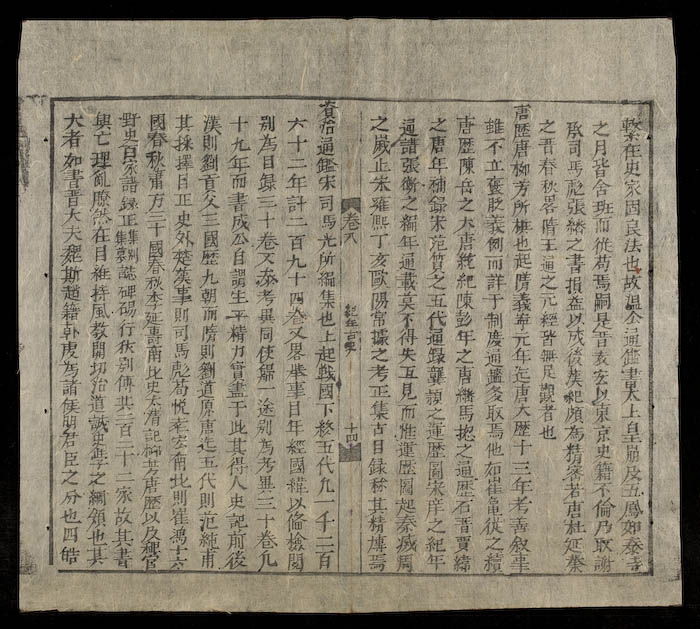 繫在史家固良法也故温公通鑑書太上皇崩及五鳳如泰
之月皆舍班而從荀焉嗣是晋袁宏以東京史籍不倫乃取謝
承司馬彪張璠之書損益以成後漢紀頗為精審若唐杜延業
之晋春秋畧隋王通之元經皆無足觀者也
唐歷唐柳芳所撰也起隋義寧元年迄唐大歷十三年考善叙事
雖不立褒貶義例而詳于制度通鑑多取焉他如崔龜從之續
唐歷陳岳之大唐統紀陳彭年之唐紀馬揔之通歷石晋賈緯
之唐年補錄宋范質之五代通錄龔頴之運歷圖宋庠之紀年
通譜張衡之編年通載莫不得失互見而惟運歷圖起秦滅周
之歲止宋雍熙丁亥歐陽常據之考正集古目錄稱其精博焉
卷八
十四
資治通鑑宋司馬光所編集也上起戰國下終五代凡一千三百
六十二年計二百九十四卷又畧舉事目年經國緯以備檢閱
別為目録三十卷又叅考異同俾歸一途別為考異三十卷凡
十九年而書成公自謂生平精力實盡于此其得人史記前後
漢則劉貢父三國歷九朝而隋則劉道原唐迄五代則范純甫
其採擇目正史外楚漢事則司馬彪荀悅袁宏南北則崔鴻十六
國春秋蕭方三十國春秋李延壽南北史太清記柳芳唐歷以及稗官
野史百家譜録正集別集墓誌碑碣行狀別傳共三百二十二家故其書
興亡理亂瞭然在目維持風教開切治道誠史學之綱領也其
大者如書晋大夫魏斯趙籍韓虔為諸侯朋君臣之分也四皓